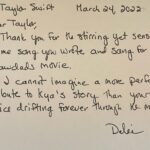 Taylor Swift March 24, 2022
ear Taylor,
Thank you for the stirring yet sens
me song you wrote and sang for
rawdads movie.
I cannot imagine a more perfe
bute to Kya's story than your
ic drifting forever through the m
Delia